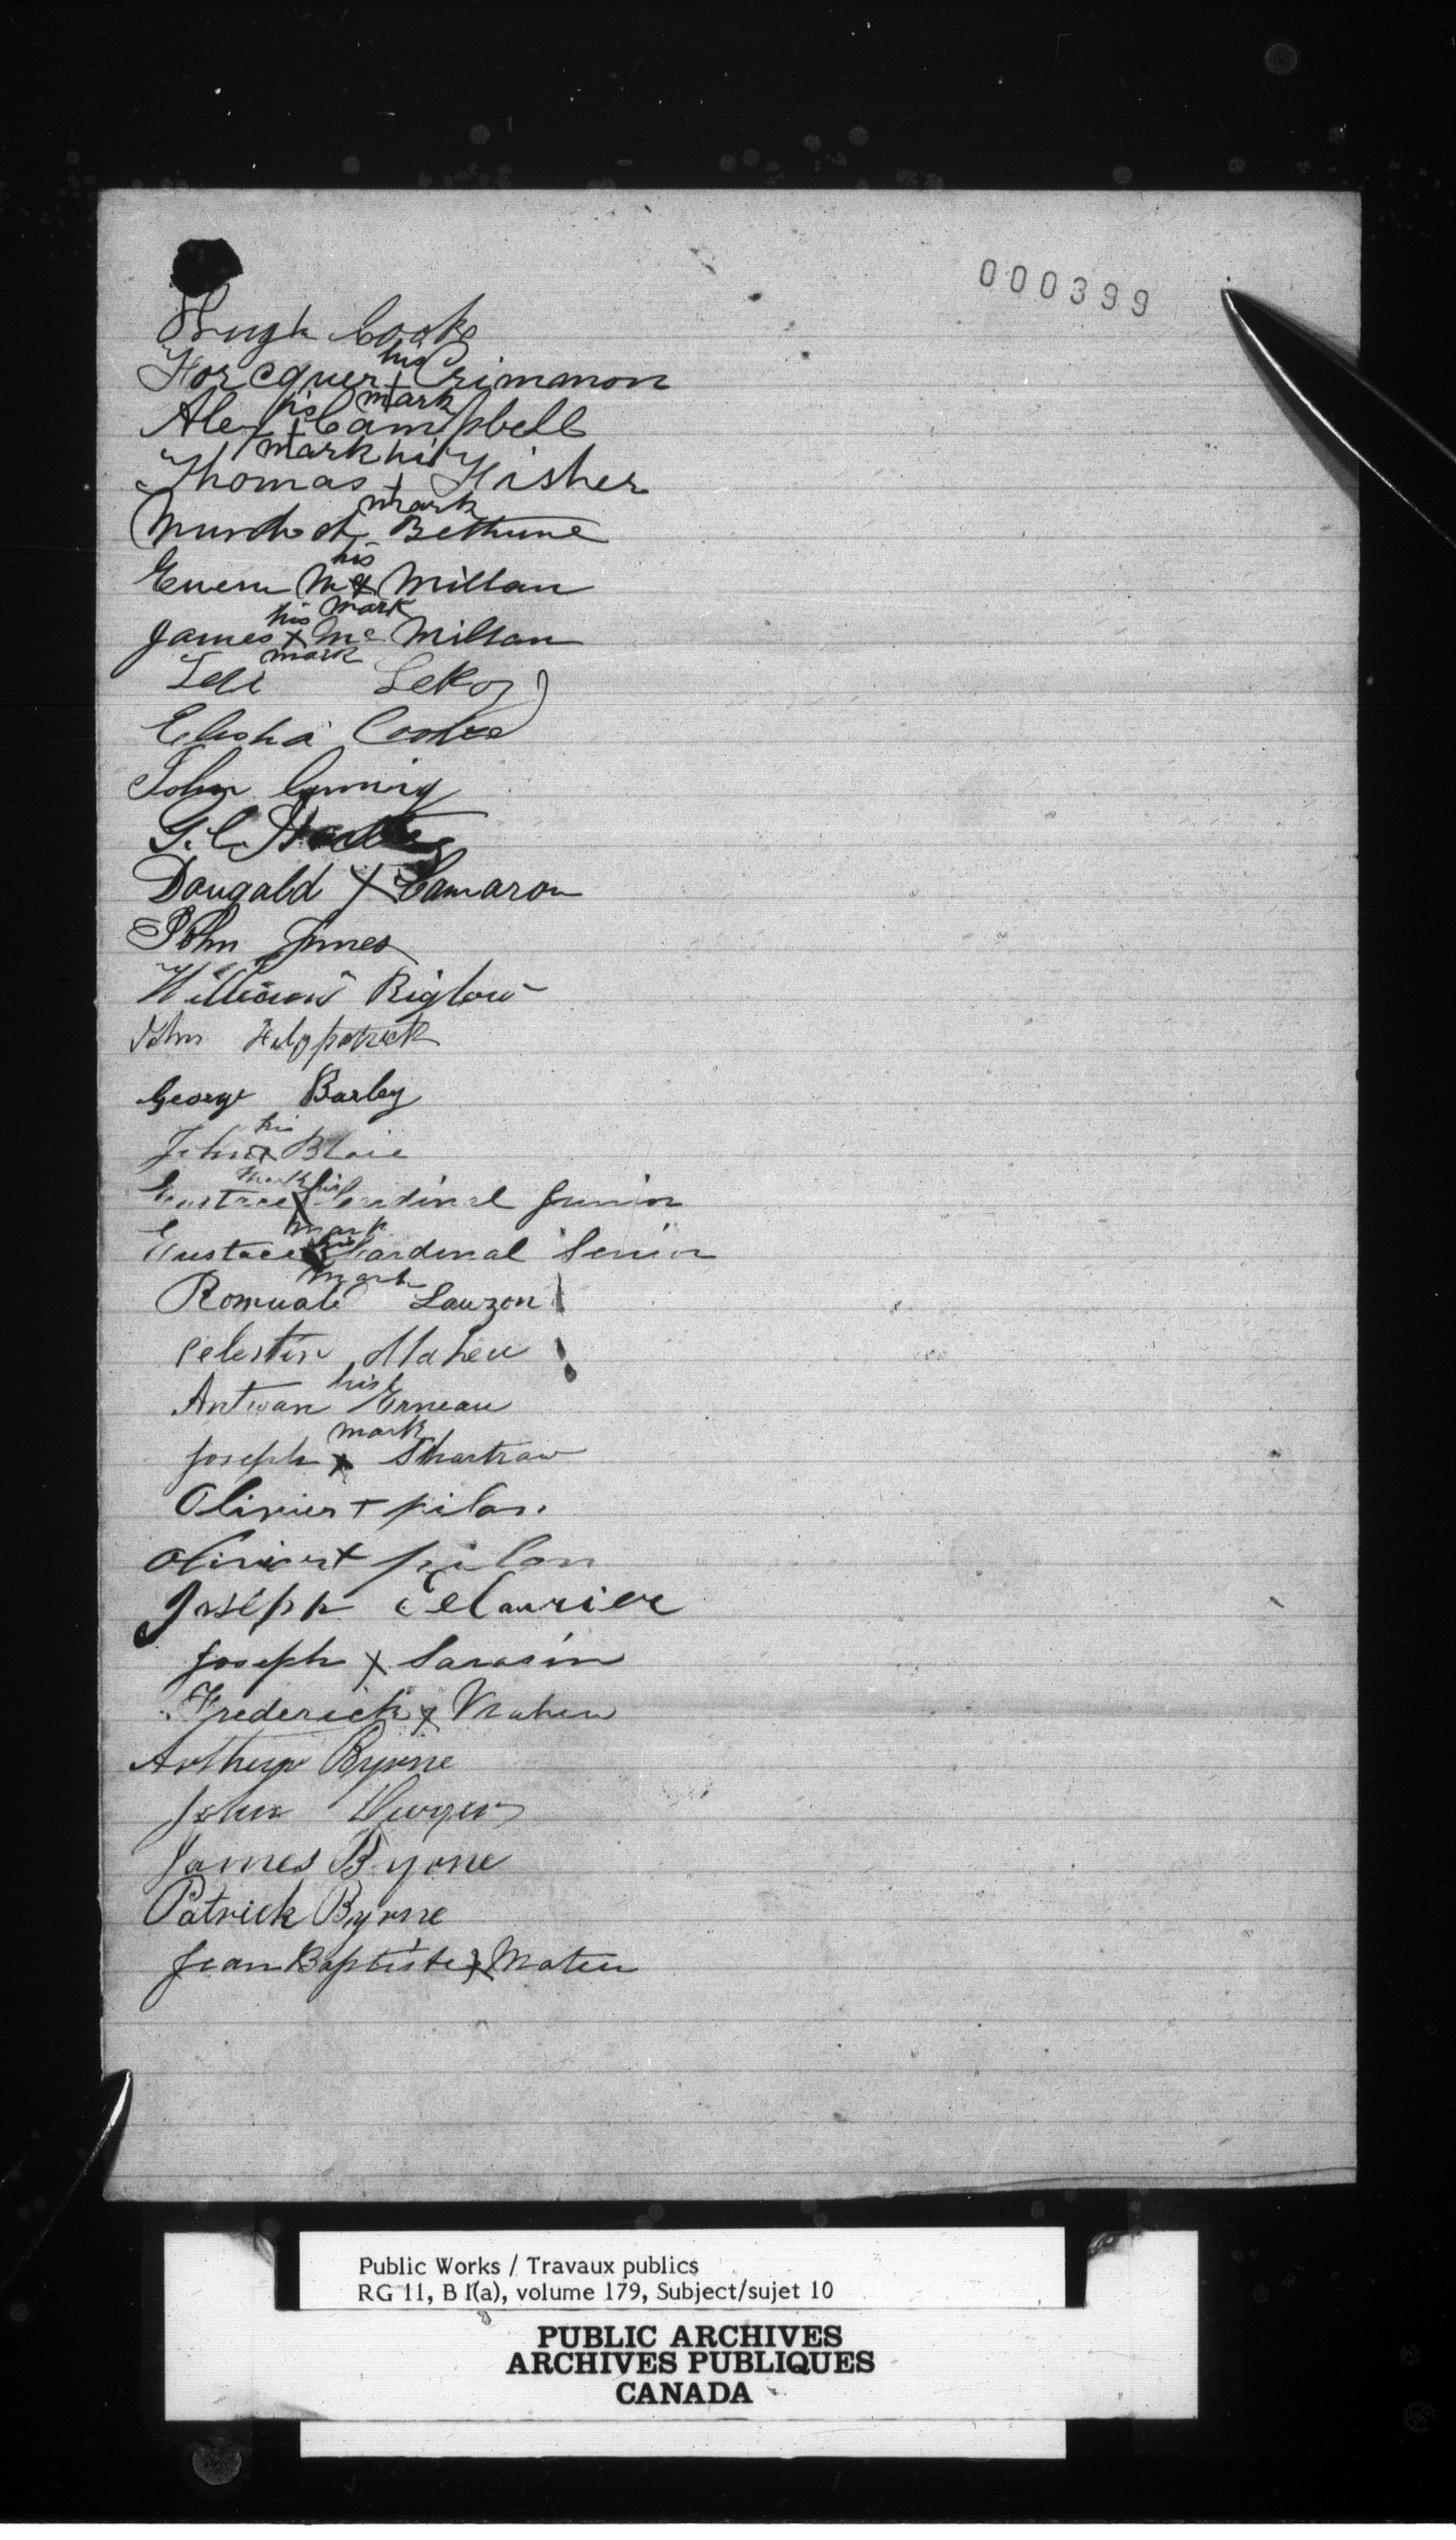 000399
Hugh Cooke
his
Forcquer + Crimmon
his mark
Alex + Campbell
mark his
Thomas + Fisher
mark
Murdoch Bethune
his
Ewen Mc + Millan
his mark
James + Mc Millan
mark
Levi LeRoy
Elisha Cooke
John
G. C.
Dougald X Camaron
John Jones
William Biglow
John Fitzpatrick
George Barley
his
John X Blair
mark his
Eustace X Cardinal Junior
mark
his
Eustace X Cardinal Senior
mark
Romuald Lauzon
Celestin Maheu
his
Antwan Erneau
mark
Joseph x Shartraw
Olivier + pilon
Olivier + pilon
Joseph
Joseph X Sarasin
Frederick x Maheu
Arthur Byrne
John
James Byrne
Patrick Byrne
Jean Baptiste X Mateu
Public Works / Travaux publics
RG 11, B 1(a), volume 179, Subject/sujet 10
PUBLIC ARCHIVES
ARCHIVES PUBLIQUES
CANADA